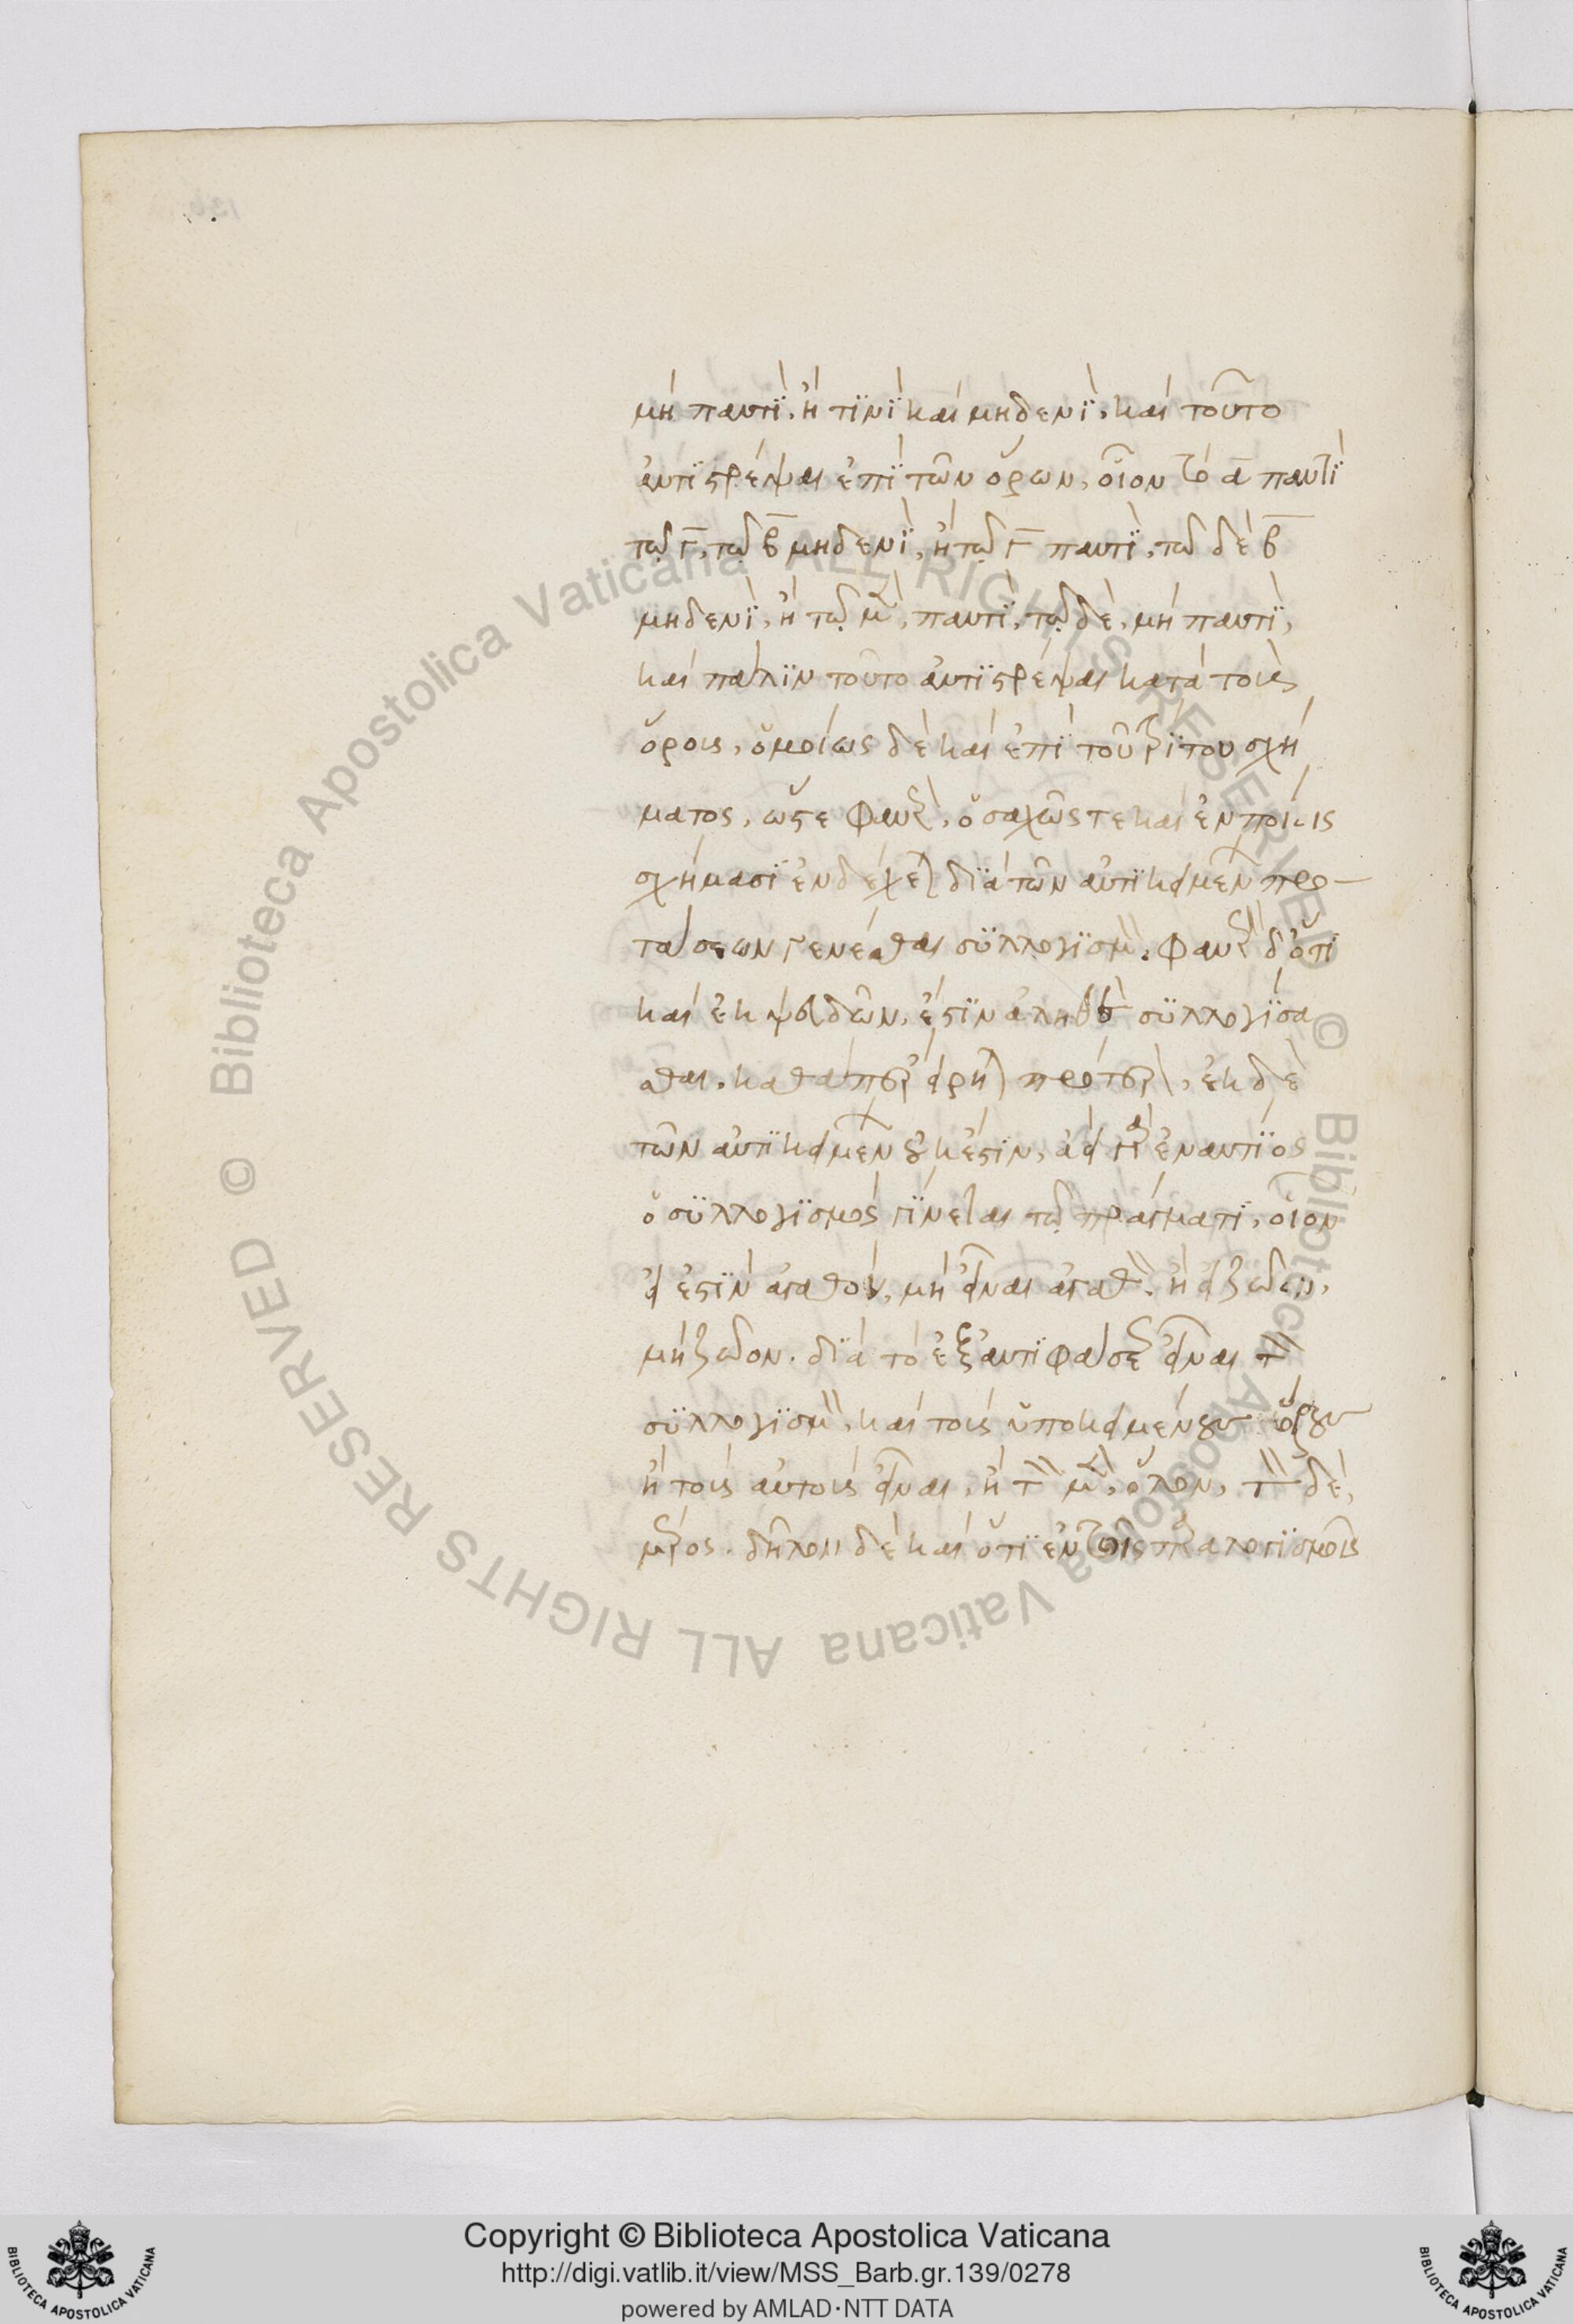 μὴ παντὶ, ἢ τινὶ καὶ μηδενὶ, καὶ τοῦτο
ἀντιστρέψαι ἐπὶ τῶν ὅρων, οἷον τὸ α̅ παντὶ
τῷ γ̅, τῷ β̅ μηδενὶ, ἢ τῷ γ̅ παντὶ, τῷ δὲ β̅
μηδενὶ, ἢ τῷ μὲν, παντὶ, τῷ δὲ, μὴ παντὶ,
καὶ πάλιν τοῦτο ἀντιστρέψαι κατὰ τοὺς
ὅρους, ὁμοίως δὲ καὶ ἐπὶ τοῦ τρίτου σχή
ματος, ὥστε φανερὸν, ὁσαχῶς τε καὶ ἐν ποίοις
σχήμασι ἐνδέχεται διὰ τῶν ἀντικειμένων προ-
τάσεων γενέσθαι συλλογισμὸν. φανερὸν δ' ὅτι
καὶ ἐκ ψευδῶν, ἔστιν ἀληθὲς συλλογίσα
σθαι, καθάπερ εἴρηται πρότερον, ἐκ δὲ
τῶν ἀντικειμένων οὐκ ἔστιν, ἀεὶ γὰρ ἐναντίος
ὁ συλλογισμὸς γίνεται τῷ πράγματι, οἷον
εἰ ἔστιν ἀγαθὸν, μὴ εἶναι ἀγαθὸν. ἢ εἰ ζῶον,
μὴ ζῶον. διὰ τὸ ἐξ ἀντιφάσεως εἶναι τὸν
συλλογισμὸν, καὶ τοὺς ὑποκειμένους ὅρους
ἢ τοὺς αὐτοὺς εἶναι, ἢ τὸν μὲν, ὅλον, τὸν δὲ,
μέρος. δῆλον δὲ καὶ ὅτι ἐν τοῖς παραλογισμοῖς
Copyright © Biblioteca Apostolica Vaticana
http://digi.vatlib.it/view/MSS_Barb.gr.139/0278
powered by AMLAD·NTT DATA